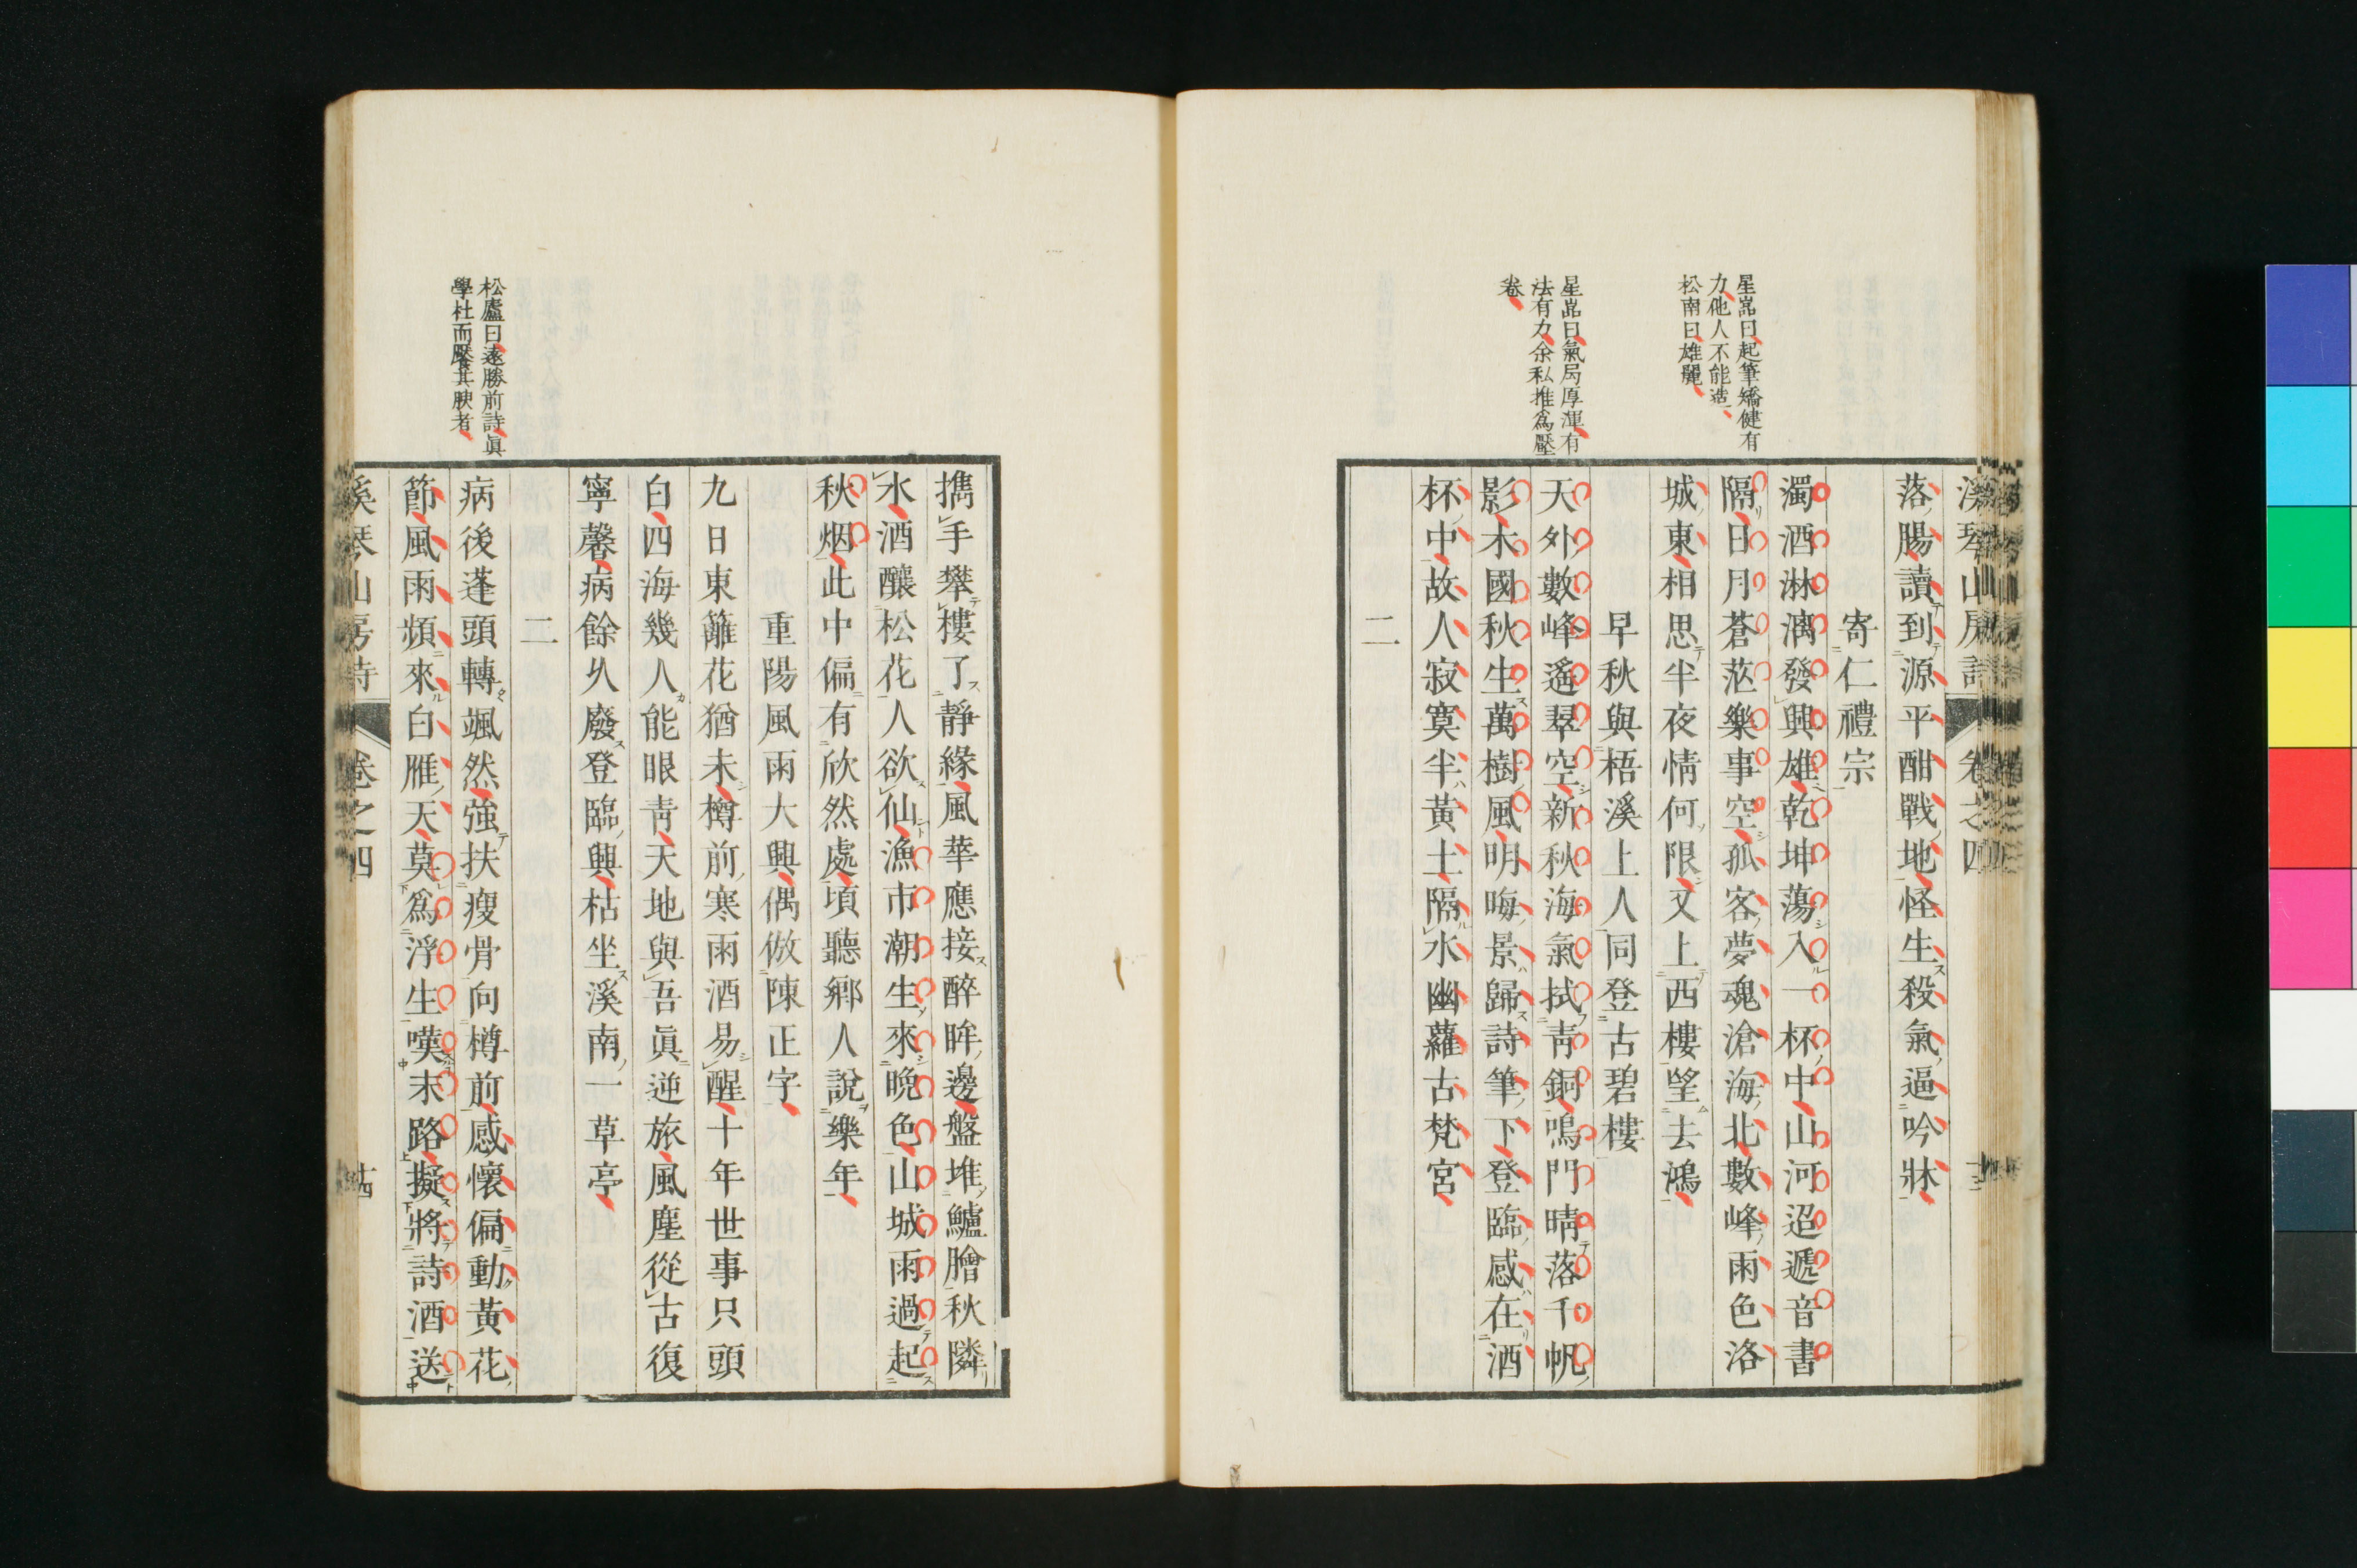 星嵓曰起筆矯健有
力他人不能造
松南曰雄麗
星嵓曰氣局厚渾有
法有力余私推爲壓
卷
溪琴山房詩 卷之四 十三
落腸讀到源平酣戰地怪生殺氣逼吟牀
寄仁禮宗
濁酒淋漓發興雄乾坤蕩入一杯中山河迢遞音書
隔日月蒼茫樂事空孤客夢魂滄海北數峰雨色洛
城東相思半夜情何限又上西樓望去鴻
早秋與梧溪上人同登古碧樓
天外數峰遙翠空新秋海氣拭靑銅鳴門晴落千帆
影木國秋生萬樹風明晦景歸詩筆下登臨感在酒
杯中故人寂寞半黃土隔水幽蘿古梵宮
二
松廬曰遠勝前詩眞
學杜而饜其腴者
擕手攀樓了靜緣風華應接醉眸邊盤堆鱸膾秋隣
水酒釀松花人欲仙漁市潮生來晩色山城雨過起
秋烟此中偏有欣然處頃聽鄕人說樂年
重陽風雨大興偶倣陳正字
九日東籬花猶未樽前寒雨酒易醒十年世事只頭
白四海幾人能眼靑天地與吾眞逆旅風塵從古復
寧馨病餘久廢登臨興枯坐溪南一草亭
二
病後蓬頭轉颯然強扶瘦骨向樽前感懷偏動黃花
節風雨頻來白雁天莫爲浮生嘆末路擬將詩酒送
溪琴山房詩 卷之四 十四